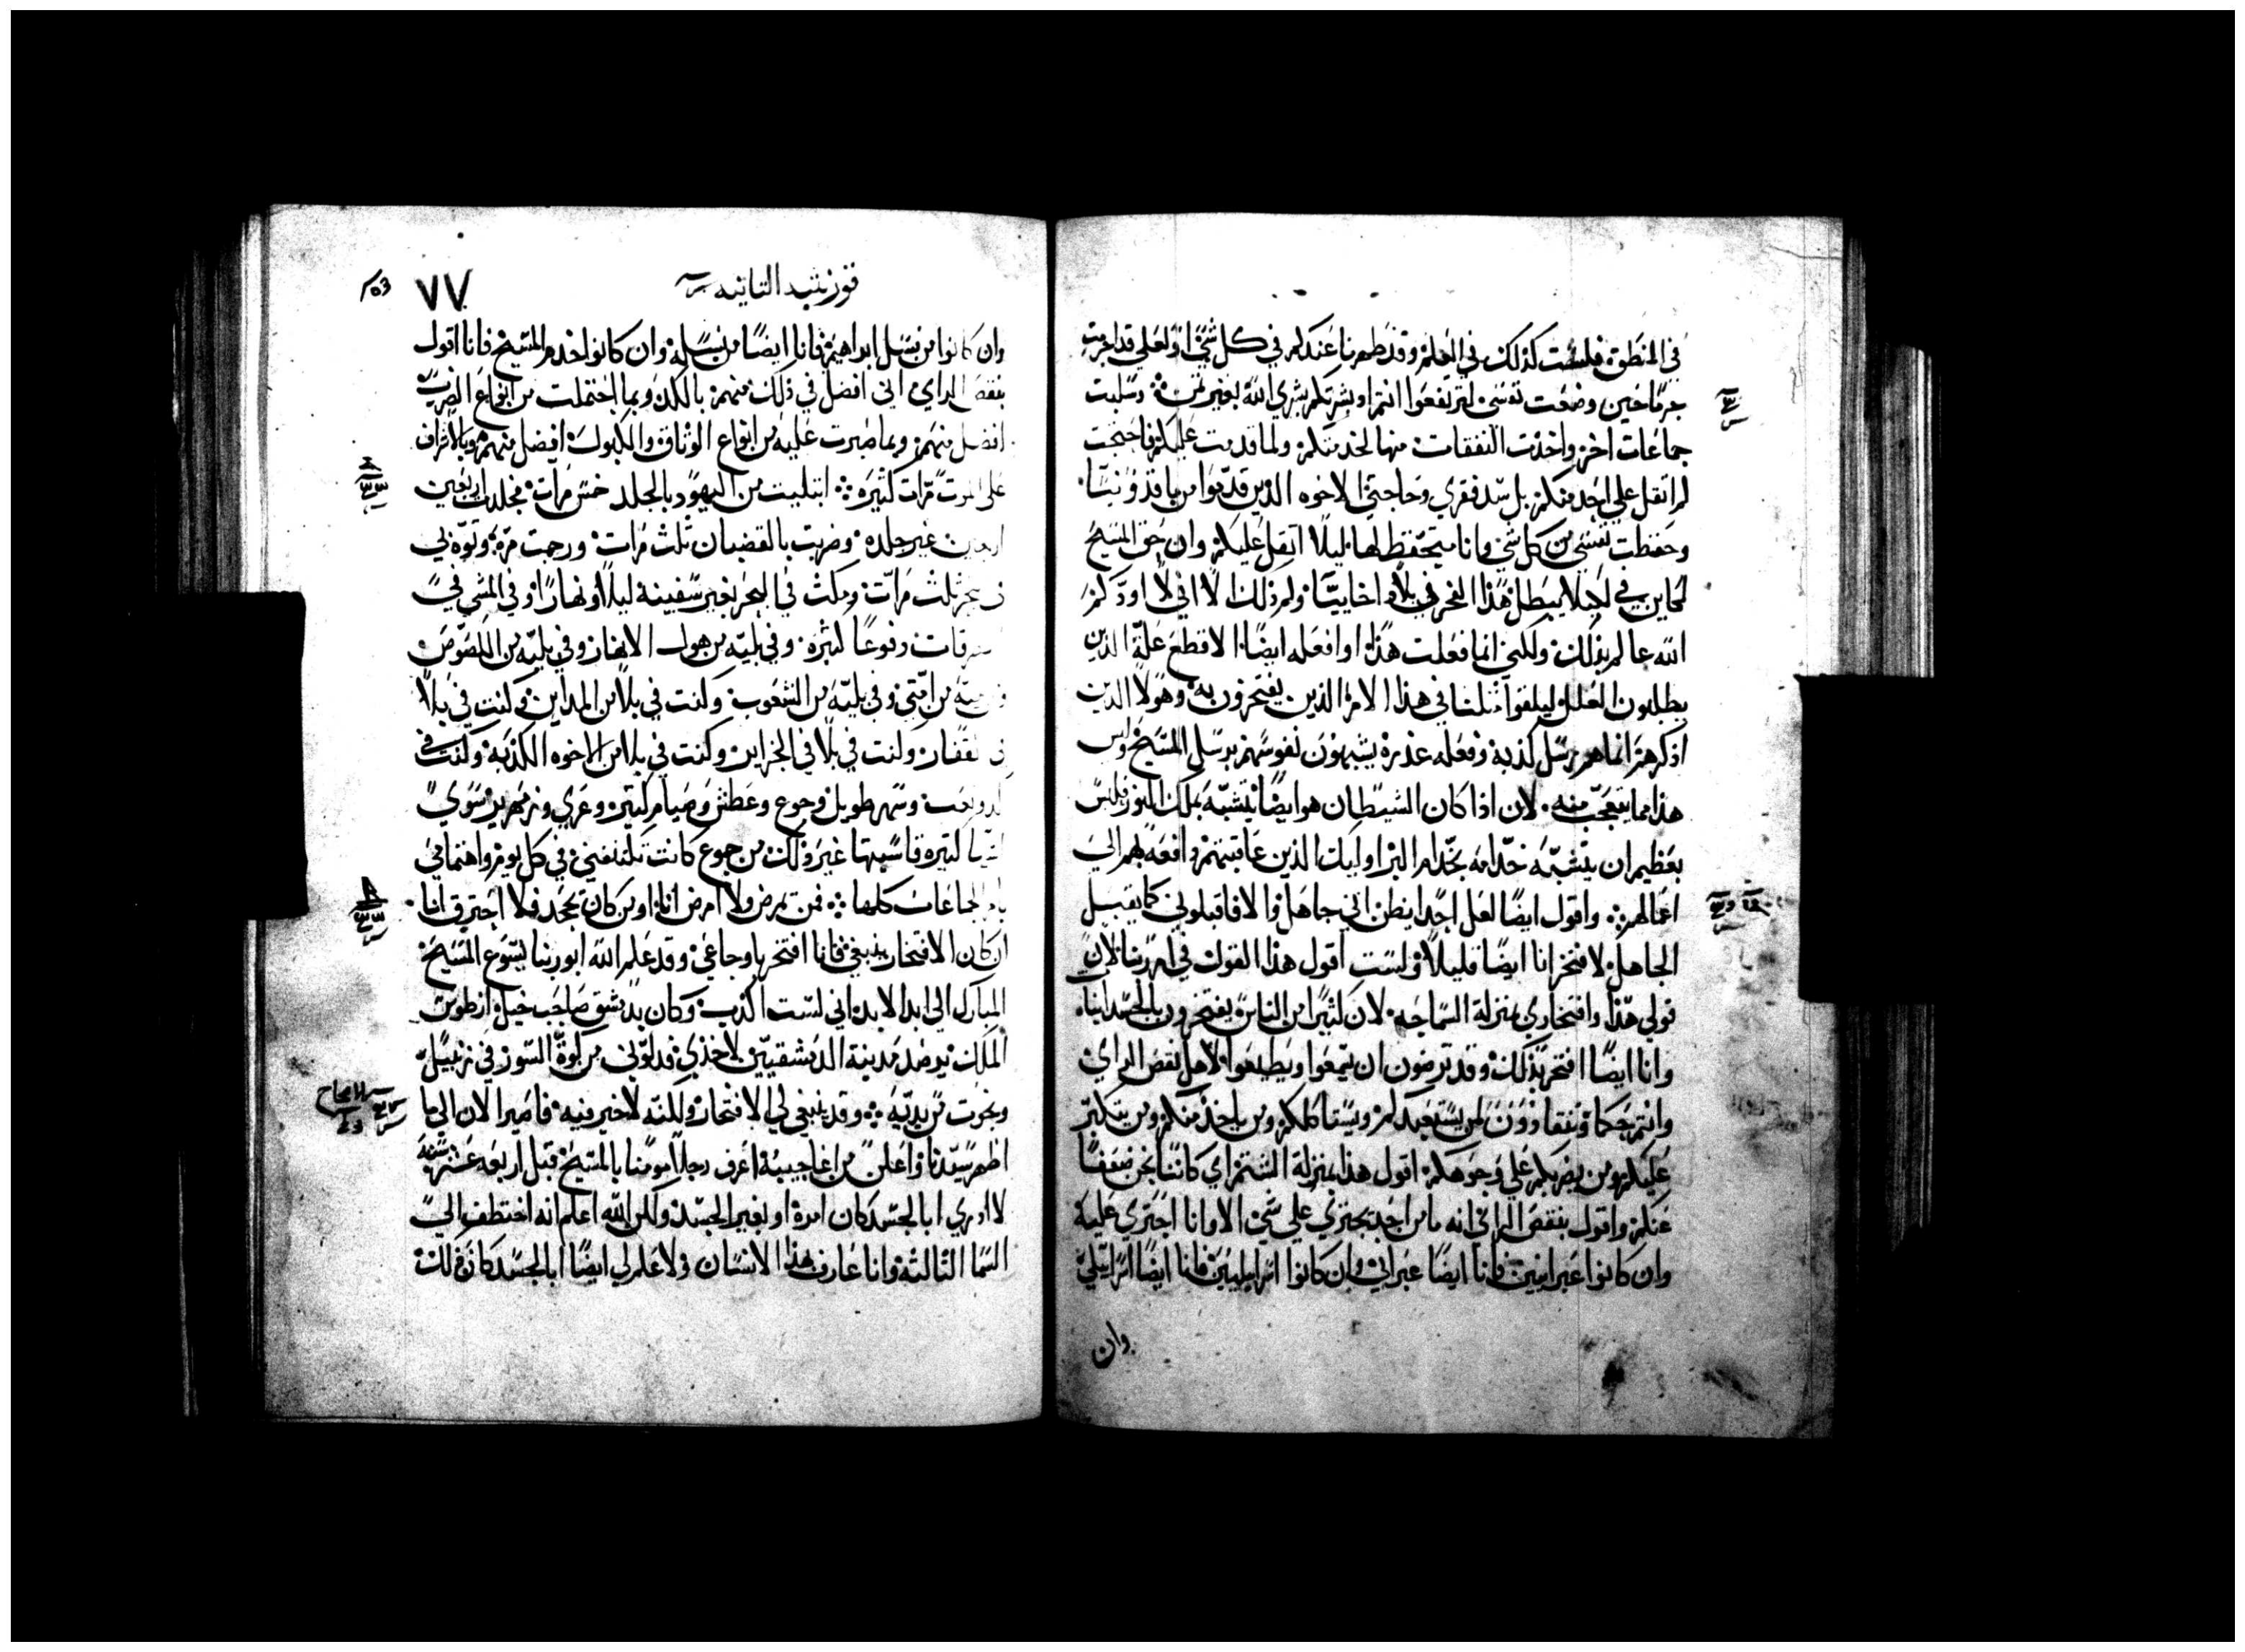 في المنطق فلست كذلك في العلم وقد ظهرنا عندكم في كل شي اولعلي قد اجرمت
جرمًا حين وضعت نفسي لترتفعوا انتم او بشرتكم بشري الله بغير ثمن وسلبت
جماعات اخر واخذت النفقات منها لخدمتكم ولما قدمت عليكم فاحتجت
لم اثقل علي احد منكم بل سد فقري وحاجتي الاخوه الذين قدموا من ماقذونيا
وحفظت نفسي من كل شي وانا متحفظ لها ليلا اثقل عليكم وان حق المسيح
لكاين في لا يبطل هذا الفخر في بلاد اخاييا ولم ذلك لا اني لا اودكم
الله عالم بذلك ولكني انما فعلت هذا او افعله ايضًا لاقطع علة الذين
يطلبون العلل ليلفوا مثلنا في هذا الامر الذين يفتخرون به وهولا الذين
اذكرهم انما هم رسل كذبة وفعله غدره يشبهون نفوسهم برسل المسيح وليس
هذا مما يتعجب منه لان اذا كان الشيطان هو ايضًا يتشبه بملك النور فليس
بعظيم ان يتشبه خدامه بخدام البر اوليك الذين عاقبتهم دافعه بهم الي
اعمالهم واقول ايضًا لعل احدًا يظن اني جاهل والا فاقبلوني كما يقبل
الجاهل لافتخر انا ايضًا قليلاً ولست اقول هذا القول في امر ربنا لان
قولي هذا وافتخاري بمنزلة السماجه لان كثيرًا من الناس يفتخرون بالجسد انيات
وانا ايضًا افتخر بذلك وقد ترضون ان تسمعوا وتطيعوا لاهل نقص الراي
وانتم حكما وتنقادون لمن يستعبدكم ويستاكلكم ومن ياخذ منكم ومن يتكبر
عليكم ومن يضربكم علي وجوهكم اقول هذا بمنزلة الشتم اي كاننا نحن ضعفا
عنكم واقول بنقص الراي انه ما من احد يجتري علي شي الا وانا اجتري عليه
وان كانوا عبرانيين فانا ايضًا عبراني وان كانوا اسراييليين فانا ايضًا اسراييلي
وان
قورنثيه الثانيه
٧٧
وان كانوا من نسل ابراهيم فانا ايضًا من نسله وان كانوا خدم المسيح فانا اقول
بنقص الراي اني افضل في ذلك منهم بالكد وبما احتملت من انواع الضرب
افضل منهم وبما صبرت عليه من انواع الوثاق والكبول افضل منهم وبالاشراف
علي الموت مرات كثيره ابتليت من اليهود بالجلد خمس مرات فجلدت اربعين
اربعين غير جلده وضربت بالقضبان ثلث مرات ورجمت مره وتوه بي
في بحر ثلث مرات ومكثت في البحر بغير سفينة ليلاً ونهارًا وفي المشي في
طرقات دفوعًا كثيره وفي بليه من هول الانهار وفي بليه من اللصوص
وفي بليه من امتي وفي بليه من الشعوب وكنت في بلا من المداين وكنت في بلا
في القفار وكنت في بلا في الجزاير وكنت في بلا من الاخوه الكذبه وكنت في
كد وتعب وسهر طويل وجوع وعطش وصيام كثير وعري وزمهرير سوي
اشيا كثيره قاسيتها غير ذلك من جموع كانت تكتنفني في كل يوم واهتمامي
بامر الجماعات كلها فمن يمرض ولا امرض انا او من كان يجحد فلا احترق انا
ان كان الافتخار ينبغي فانا افتخر باوجاعي وقد علم الله ابو ربنا يسوع المسيح
المبارك الي ابد الابد اني لست اكذب وكان بدمشق صاحب خيل ارطوس
الملك يرصد مدينة الدمشقيين لاخذي فدلوني من كوة السور في زنبيل
ونجوت من يديه وقد ينبغي لي الافتخار ولكنه لا خير فيه فاصير الان الي ما
اظهر سيدنا واعلن من اعاجيبه اعرف رجلاً مومنا بالمسيح قبل اربعه عشر سنه
لا ادري ابالجسد كان امره او بغير الجسد ولكن الله اعلم انه اختطف الي
السما الثالثه وانا عارف هذا الانسان ولا علم لي ايضًا ابالجسد كان ذلك